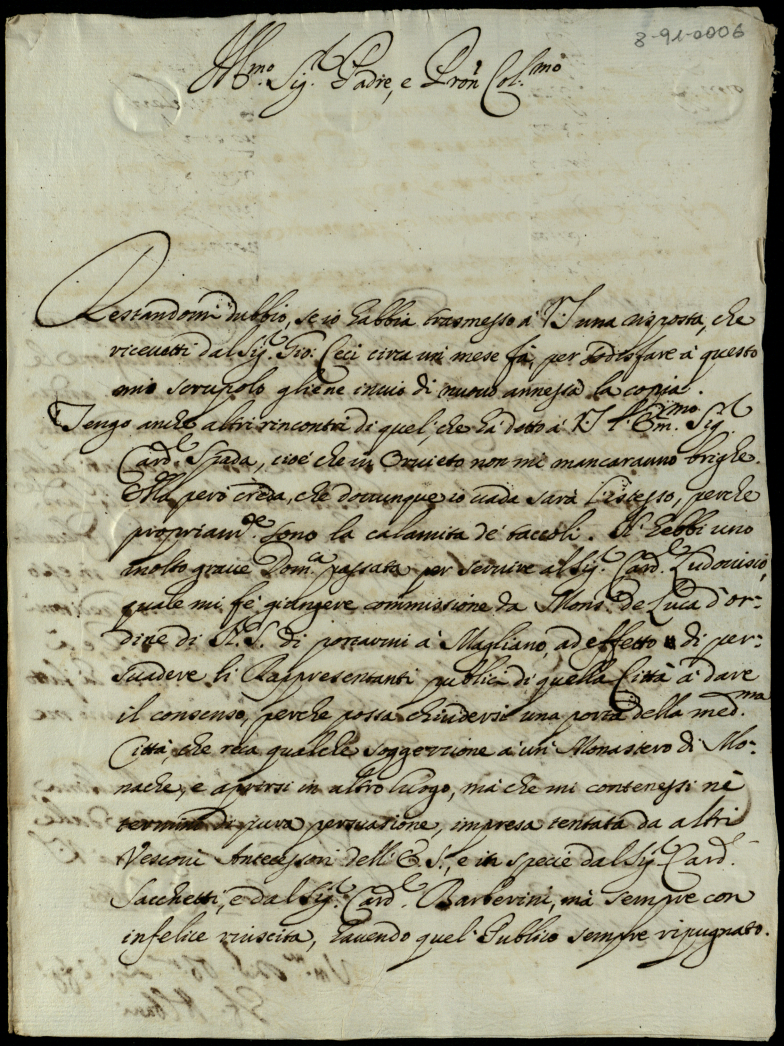 3-91-0006
Ill.mo Sig.r Padre, e Pron Col.mo
Restandomi dubbio, se io habbia trasmesso à V.S una risposta, che
ricevetti dal Sig.r Gio: Ceci circa un mese fà, per sodisfare à questo
mio scrupolo gliene invio di nuovo annessa la copia.
Tengo anche altri rincontri di quel' che hà detto à V.S l'Em.mo Sig.r
Card.le Spada, cioè che in Orvieto non mi mancaranno brighe.
Ella però creda, che dovunque io vada sarà l'istesso, perche
propriam.te sono la calamita de' taccoli. N'hebbi uno
molto grave Dom.ca passata per servire al Sig.r Card.le Ludovisio,
quale mi fè giungere commissione da Mons.r de Luca d'or=
dine di N.S. di portarmi à Magliano, ad effetto di per=
suadere li Rappresentanti publici di quella Città à dare
il consenso, perche possa chiudersi una porta della med.ma
Città, che reca qualche soggezzione à un' Monastero di Mo=
nache, e aprirsi in altro luogo, mà che mi contenessi nè
termini di pura persuasione, impresa tentata da altri
Vescovi Antecessori dell' E.S., e in specie dal Sig.r Card.
Sacchetti, e dal Sig.r Card.le Barberini, mà sempre con
infelice riuscita, havendo quel' Publico sempre ripugnato.